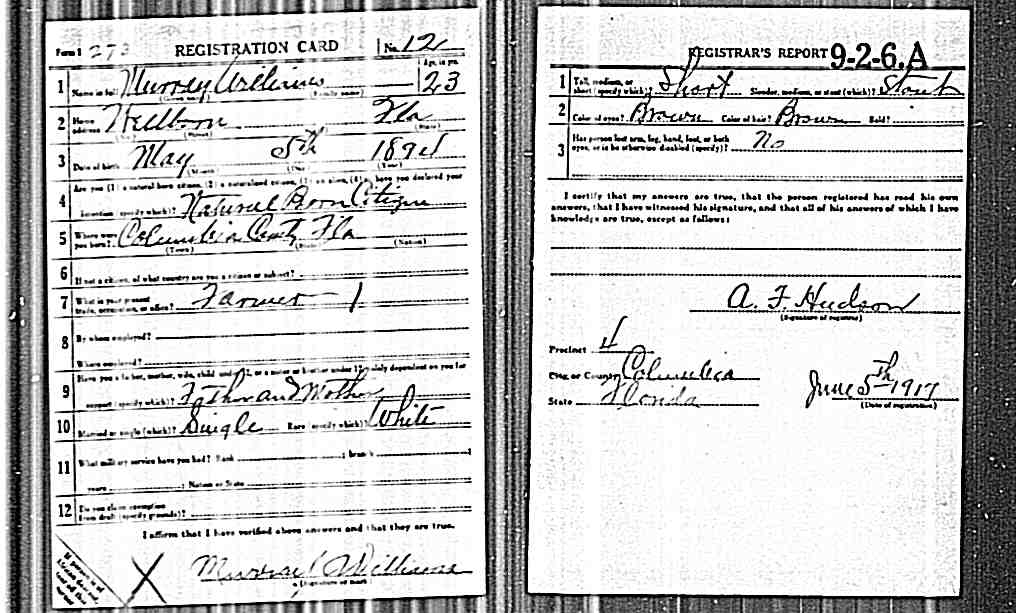 Form 1 273 REGISTRATION CARD No. 12
Age, in yrs.
1 Name in full Murrey Williams 23
(Given name) (Family name)
2 Home address Wellborn Fla
(No.) (Street) (State)
3 Date of birth May 5th 1894
(Month) (Day) (Year)
Are you (1) a natural born citizen, (2) a naturalized citizen, (3) an alien, (4) or have you declared your
4 intention (specify which)? Natural Born Citizen
5 Where were you born? Columbia County Fla
(Town) (State) (Nation)
6 If not a citizen, of what country are you a citizen or subject?
7 What is your present trade, occupation, or office? Farmer 1
8 By whom employed?
Where employed?
9 Have you a father, mother, wife, child under 12, or a sister or brother under 12, solely dependent on you for
support (specify which)? Father and Mother
10 Married or single (which)? Single Race (specify which)? White
11 What military service have you had? Rank ; branch ;
years ; Nation or State
12 Do you claim exemption from draft (specify grounds)?
I affirm that I have verified above answers and that they are true.
X Murray Williams
(Signature or mark)
REGISTRAR'S REPORT 9-2-6.A
1 Tall, medium, or short (specify which)? Short Slender, medium, or stout (which)? Stout
2 Color of eyes? Brown Color of hair? Brown Bald?
3 Has person lost arm, leg, hand, foot, or both eyes, or is he otherwise disabled (specify)? No
I certify that my answers are true, that the person registered has read his own
answers, that I have witnessed his signature, and that all of his answers of which I have
knowledge are true, except as follows:
A. F. Hudson
(Signature of registrar)
Precinct 4
City or County Columbia
State Florida June 5th 1917
(Date of registration)